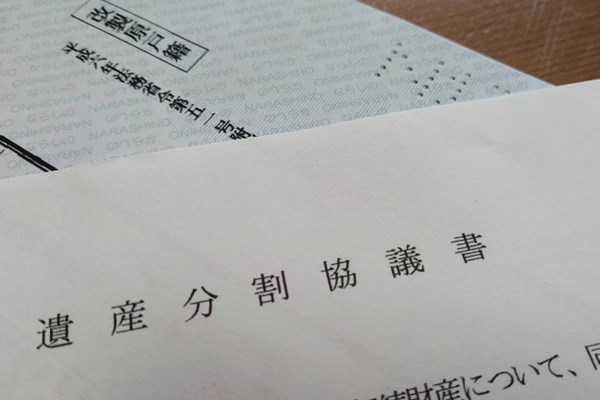 改製原戸籍
平成六年法務省令第五一号附
NARASHINO ならしの
遺産分割協議書
続財産について、同